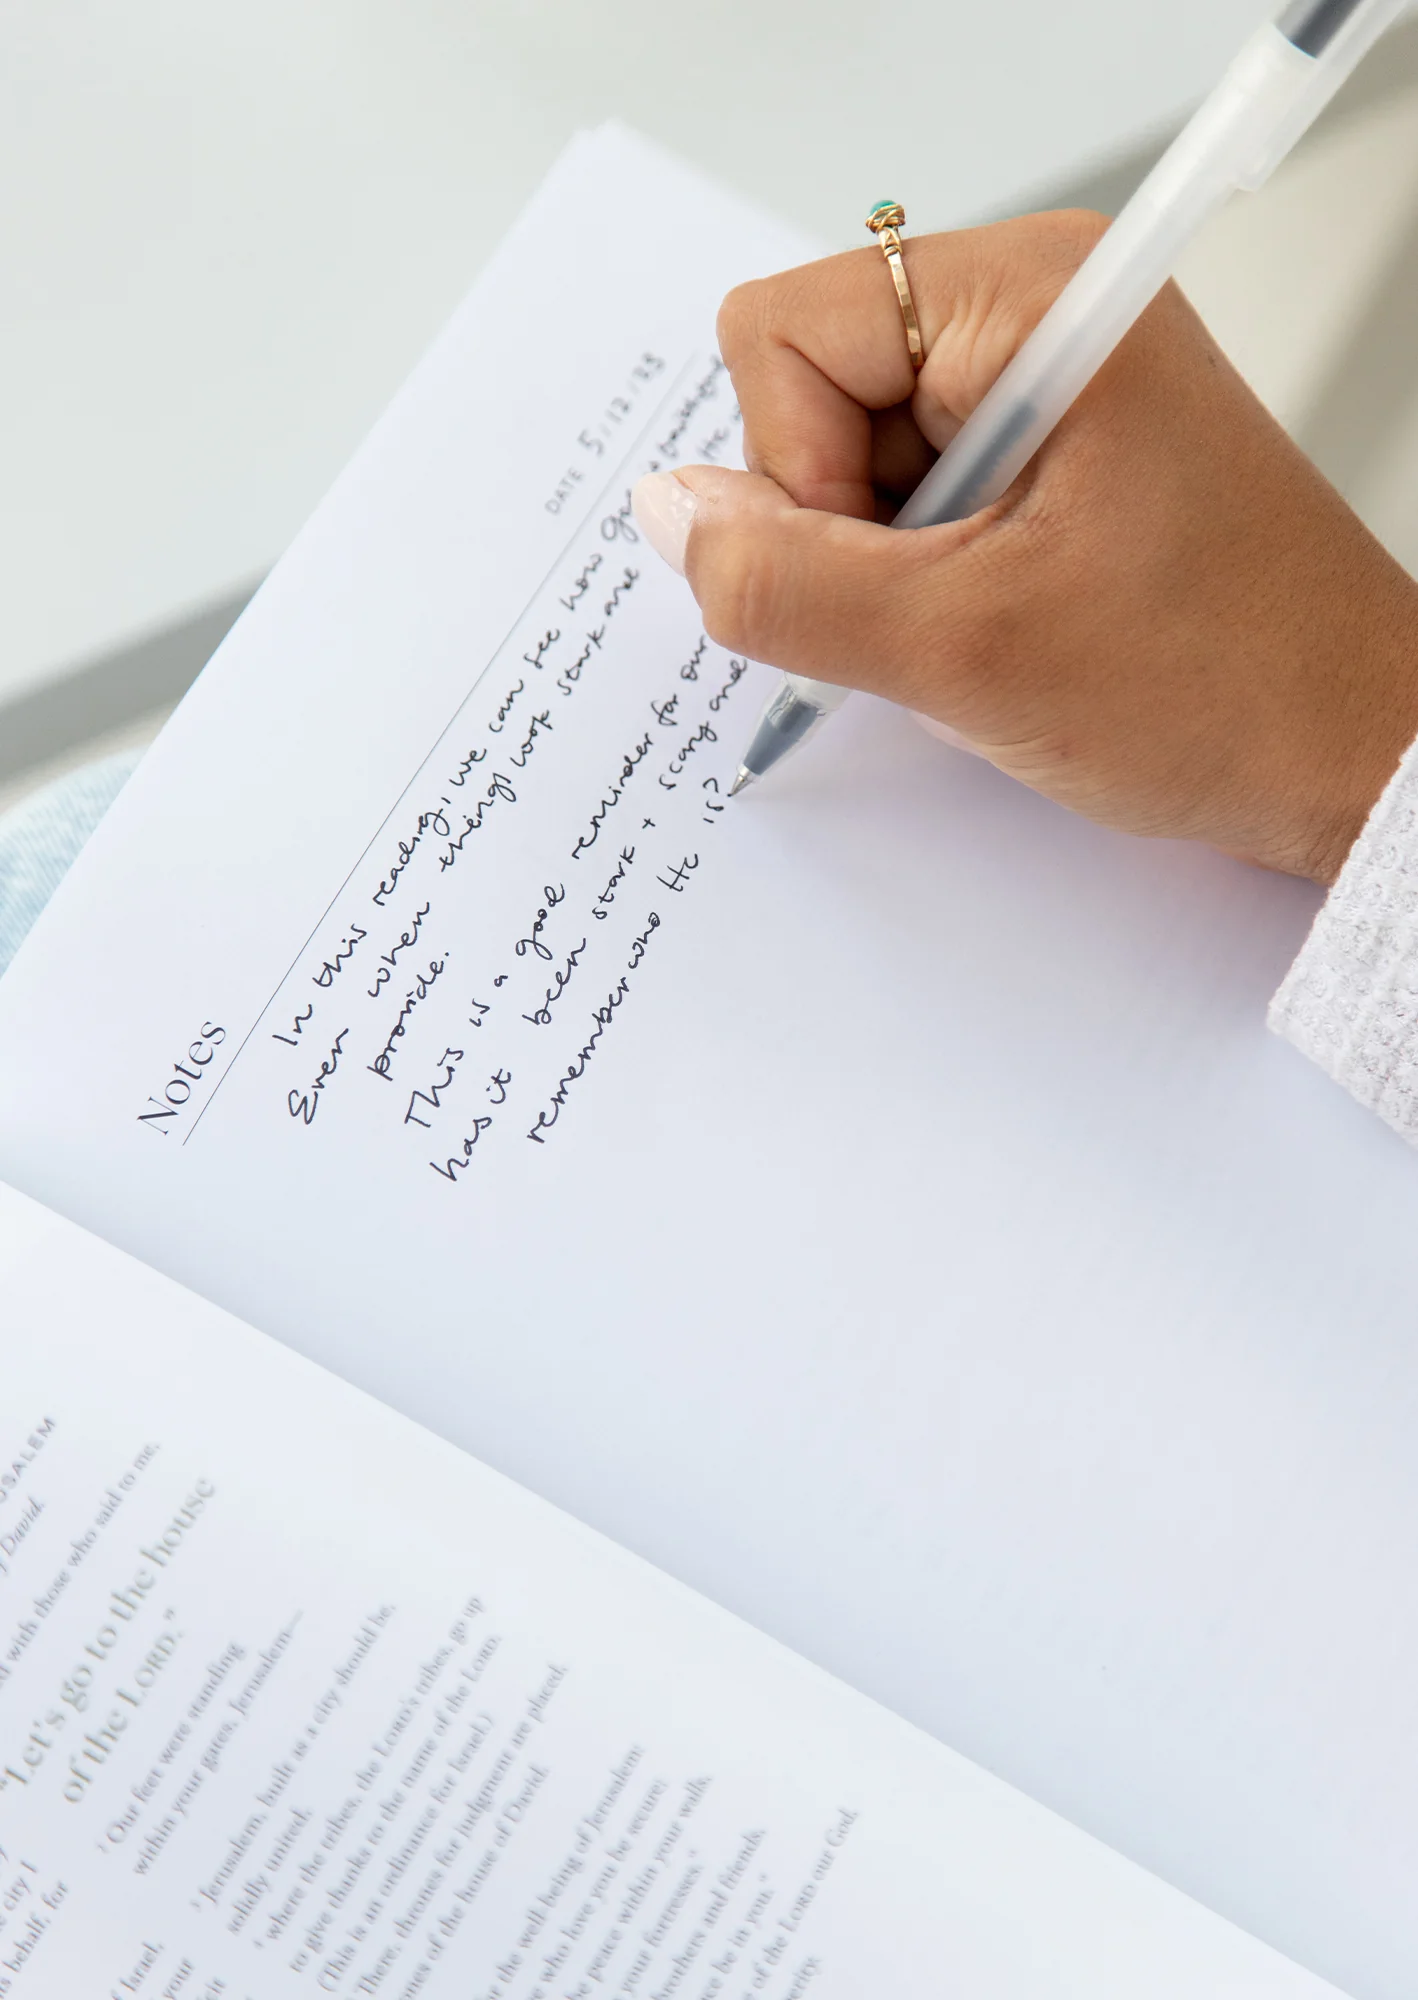 Notes
DATE 5/12/23
In this reading, we can see how
Even when things look stark and He
provide.
This is a good reminder for our
has it been stark + scary and
remember who He is?
OSALEM
David.
with those who said to me,
"Let's go to the house
of the LORD."
2 Our feet were standing
within your gates, Jerusalem—
3 Jerusalem, built as a city should be,
solidly united,
4 where the tribes, the LORD's tribes, go up
to give thanks to the name of the LORD.
(This is an ordinance for Israel.)
There, thrones for judgment are placed,
ones of the house of David.
the well-being of Jerusalem:
who love you be secure;
peace within your walls,
your fortresses."
brothers and friends,
be in you."
of the LORD our God,
city I
behalf, for
Israel,
your